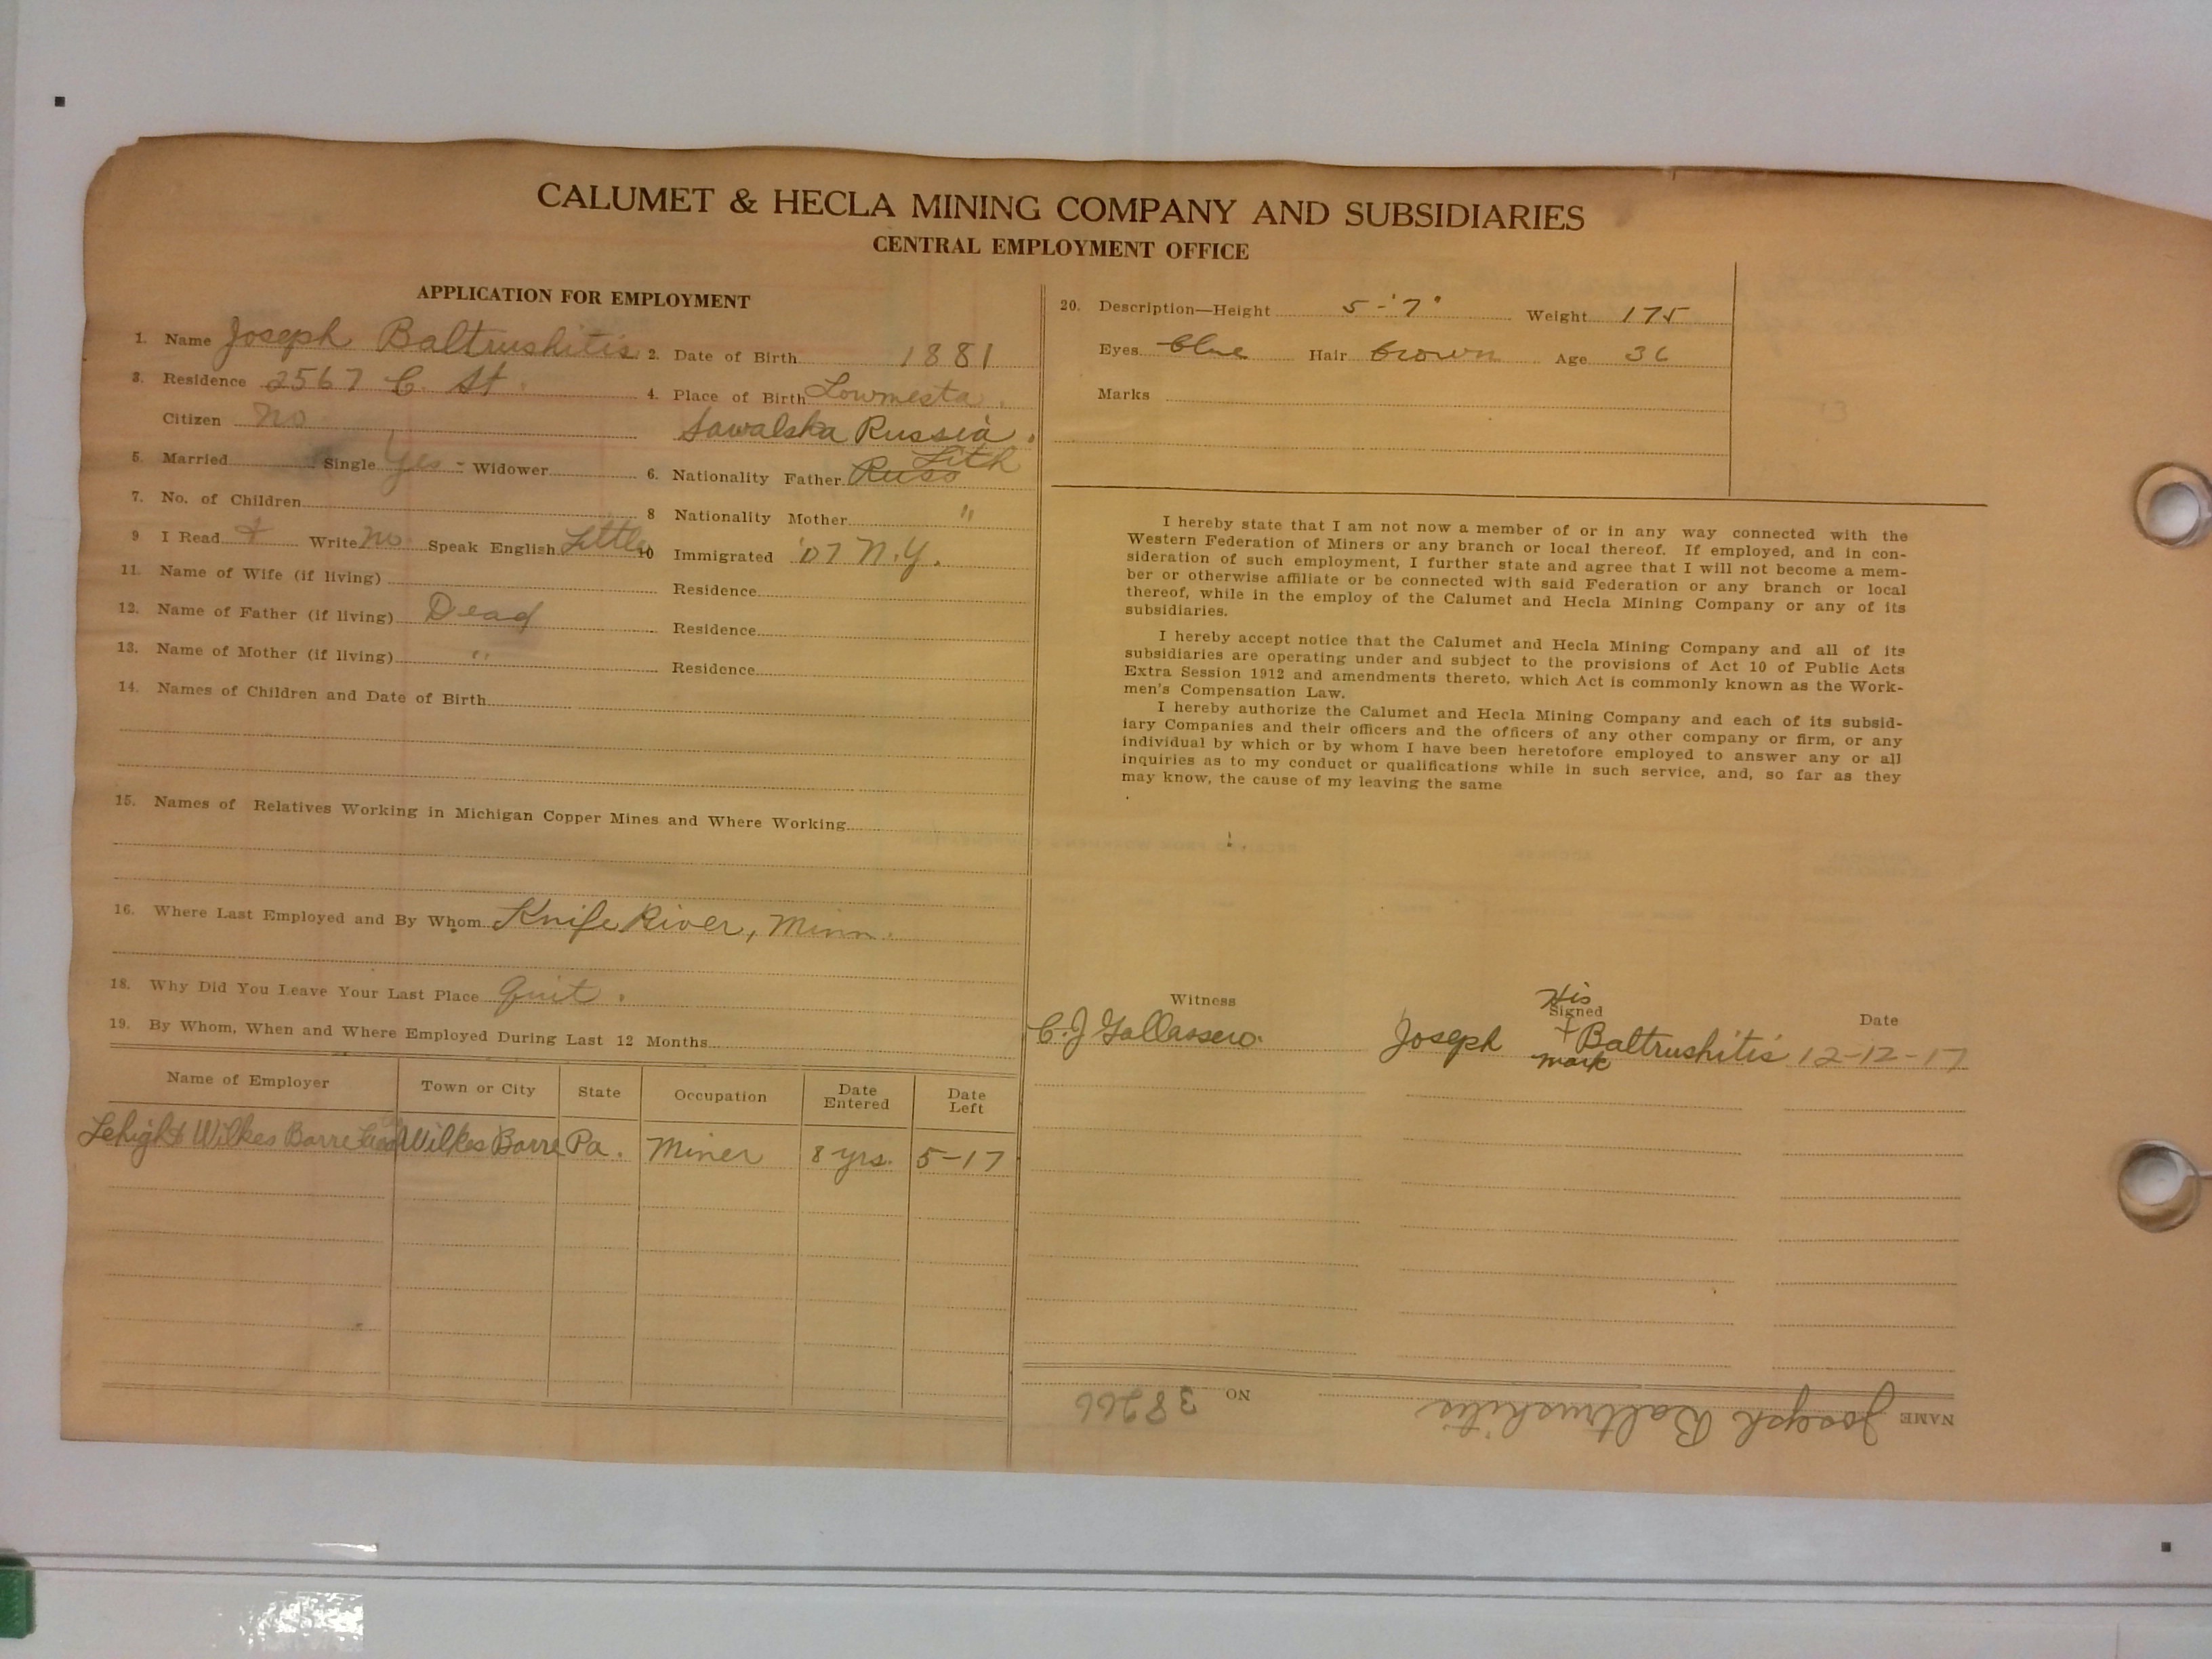 CALUMET & HECLA MINING COMPANY AND SUBSIDIARIES
CENTRAL EMPLOYMENT OFFICE
APPLICATION FOR EMPLOYMENT
1. Name Joseph Baltrushitis 2. Date of Birth 1881
3. Residence 2567 C. St. 4. Place of Birth Lowmesta.
Citizen no Sawalska Russia.
5. Married Single Yes - Widower 6. Nationality Father Russ Lith
7. No. of Children 8 Nationality Mother "
9. I Read + Write no Speak English Little 10 Immigrated '07 N.Y.
11. Name of Wife (if living) Residence
12. Name of Father (if living) Dead Residence
13. Name of Mother (if living) " Residence
14. Names of Children and Date of Birth
15. Names of Relatives Working in Michigan Copper Mines and Where Working
16. Where Last Employed and By Whom Knife River, Minn.
18. Why Did You Leave Your Last Place quit.
19. By Whom, When and Where Employed During Last 12 Months
Name of Employer Town or City State Occupation Date Entered Date Left
Lehigh & Wilkes Barre Wilkes Barre Pa. Miner 8 yrs. 5-17
20. Description—Height 5-'7" Weight 175
Eyes blue Hair brown Age 36
Marks
I hereby state that I am not now a member of or in any way connected with the
Western Federation of Miners or any branch or local thereof. If employed, and in con-
sideration of such employment, I further state and agree that I will not become a mem-
ber or otherwise affiliate or be connected with said Federation or any branch or local
thereof, while in the employ of the Calumet and Hecla Mining Company or any of its
subsidiaries.
I hereby accept notice that the Calumet and Hecla Mining Company and all of its
subsidiaries are operating under and subject to the provisions of Act 10 of Public Acts
Extra Session 1912 and amendments thereto, which Act is commonly known as the Work-
men's Compensation Law.
I hereby authorize the Calumet and Hecla Mining Company and each of its subsid-
iary Companies and their officers and the officers of any other company or firm, or any
individual by which or by whom I have been heretofore employed to answer any or all
inquiries as to my conduct or qualifications while in such service, and, so far as they
may know, the cause of my leaving the same
Witness His Signed Date
C. J Gallassero. Joseph + Baltrushitis 12-12-17
mark
NAME Joseph Baltrushitis NO 38266